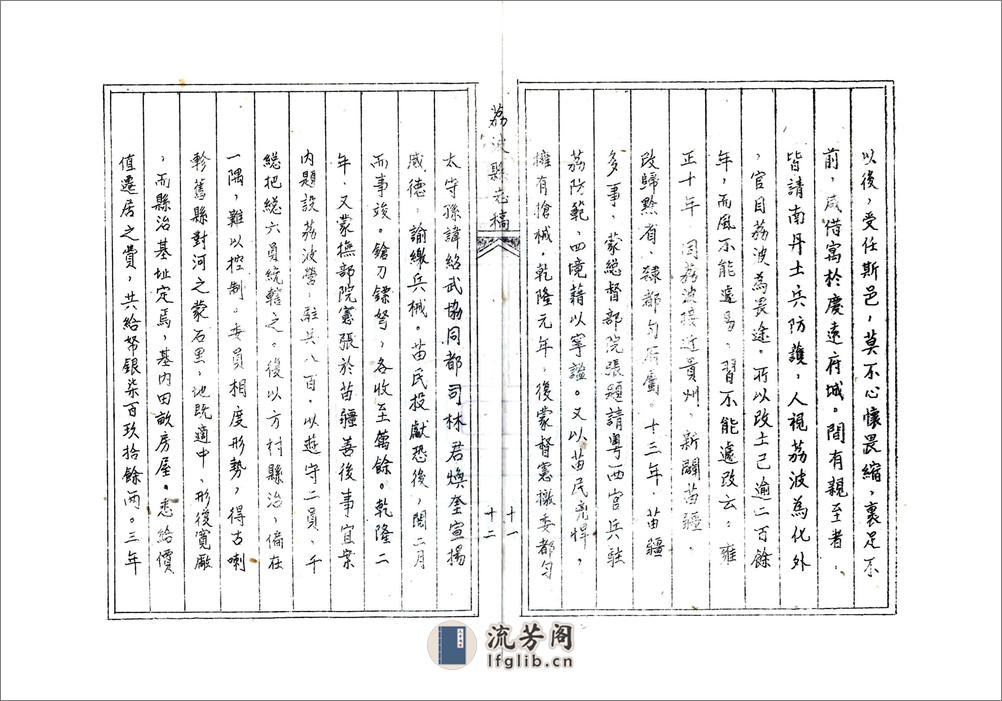 以後，受任斯邑，莫不心懷畏縮，裏足不
前，咸借寓於慶遠府城。間有親至者，
皆請南丹土兵防護，人視荔波為化外
，官目荔波為畏途。所以改土已逾二百餘
年，而風不能遽易，習不能遽改云：雍
正十年，因荔波接近貴州，新闢苗疆，
改歸黔省、隸都勻府屬。十三年，苗疆
多事，蒙總督部院張疆請粵西官兵駐
荔防範，四境藉以寧謐。又以苗民兇悍，
擁有搶械，乾隆元年，復蒙督憲檄委都勻
荔波縣志稿
十一
十二
太守孫諱紹武協同都司林君煥奎宣揚
威德，諭繳兵械。苗民投獻恐後，閱二月
而事竣。鎗刀鏢弩，各收至萬餘。乾隆二
年，又蒙撫部院憲張於苗疆善後事宜案
內題設荔波營，駐兵八百，以遊守二員、千
總把總六員統轄之。復以方村縣治，偏在
一隅，難以控制。委員相度形勢，得古喇
軫舊縣對河之蒙石里，地既適中、形復寬廠
，而縣治基址定焉，基內田畝房屋。悉給價
值遷居之費，共給帑銀柒百玖拾餘兩。三年
流芳阁
lfglib.cn